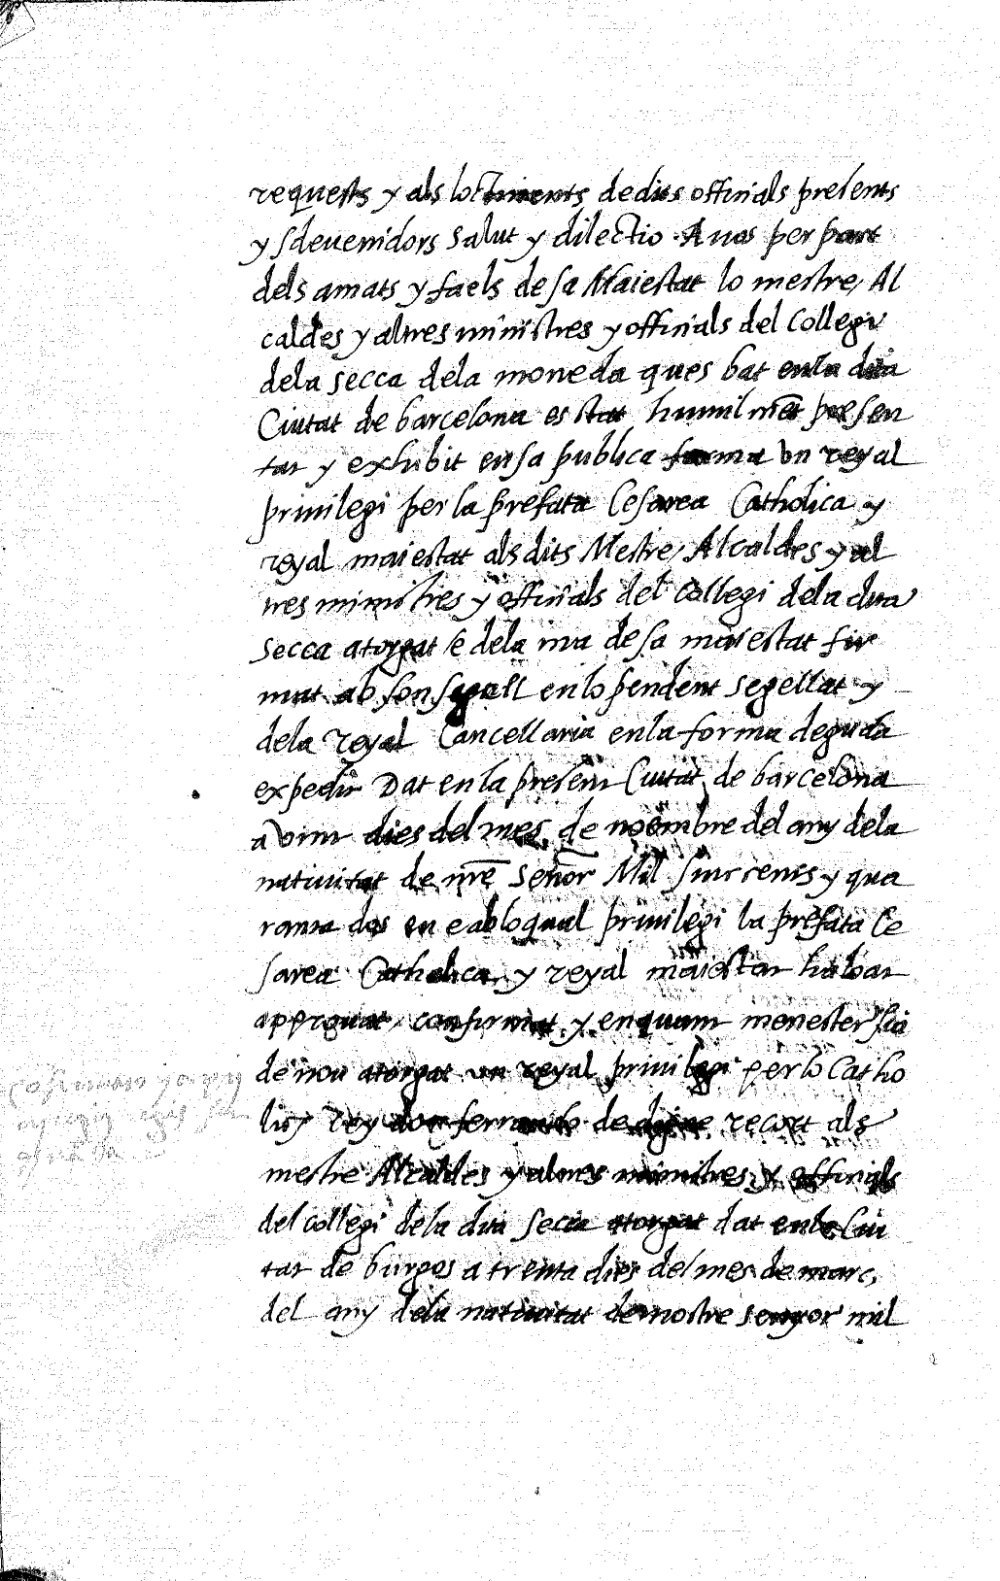 requests y als loctinents dedits offitials presents
y sdevenidors salut y dilectio. A nos per part
dels amats y faels de sa Maiestat lo mestre, Al
caldes y altres ministres y offitials del Collegi
dela secca dela moneda ques bat enla dita
Ciutat de barcelona es stat humilmēt presen
tar y exhibit ensa publica forma un reyal
privilegi per la prefata Cesarea Catholica y
reyal maiestat als dits Mestre, Alcaldes y al
tres ministres y offitials del Collegi dela dita
secca atorgat e dela ma de sa maiestat fir
mat ab son segell enlo pendent segellat y
dela reyal Cancellaria enla forma deguda
expedit Dat enla present Ciutat de barcelona
a vint dies del mes de noembre del any dela
nativitat de nr̄e Señor Mil sinccents y qua
ranta dos en e ab loqual privilegi la prefata Ce
sarea Catholica y reyal maiestat ha loat
approuat, confirmat y enquant menester sia
de nou atorgat un reyal privilegi per lo Catho
lic rey don ferrando de digne recort als
mestre Alcaldes y altres ministres y offitials
del collegi dela dita secca atorgat dat enla Ciu
tat de burgos a trenta dies del mes de març,
del any dela nativitat de nostre senyor mil